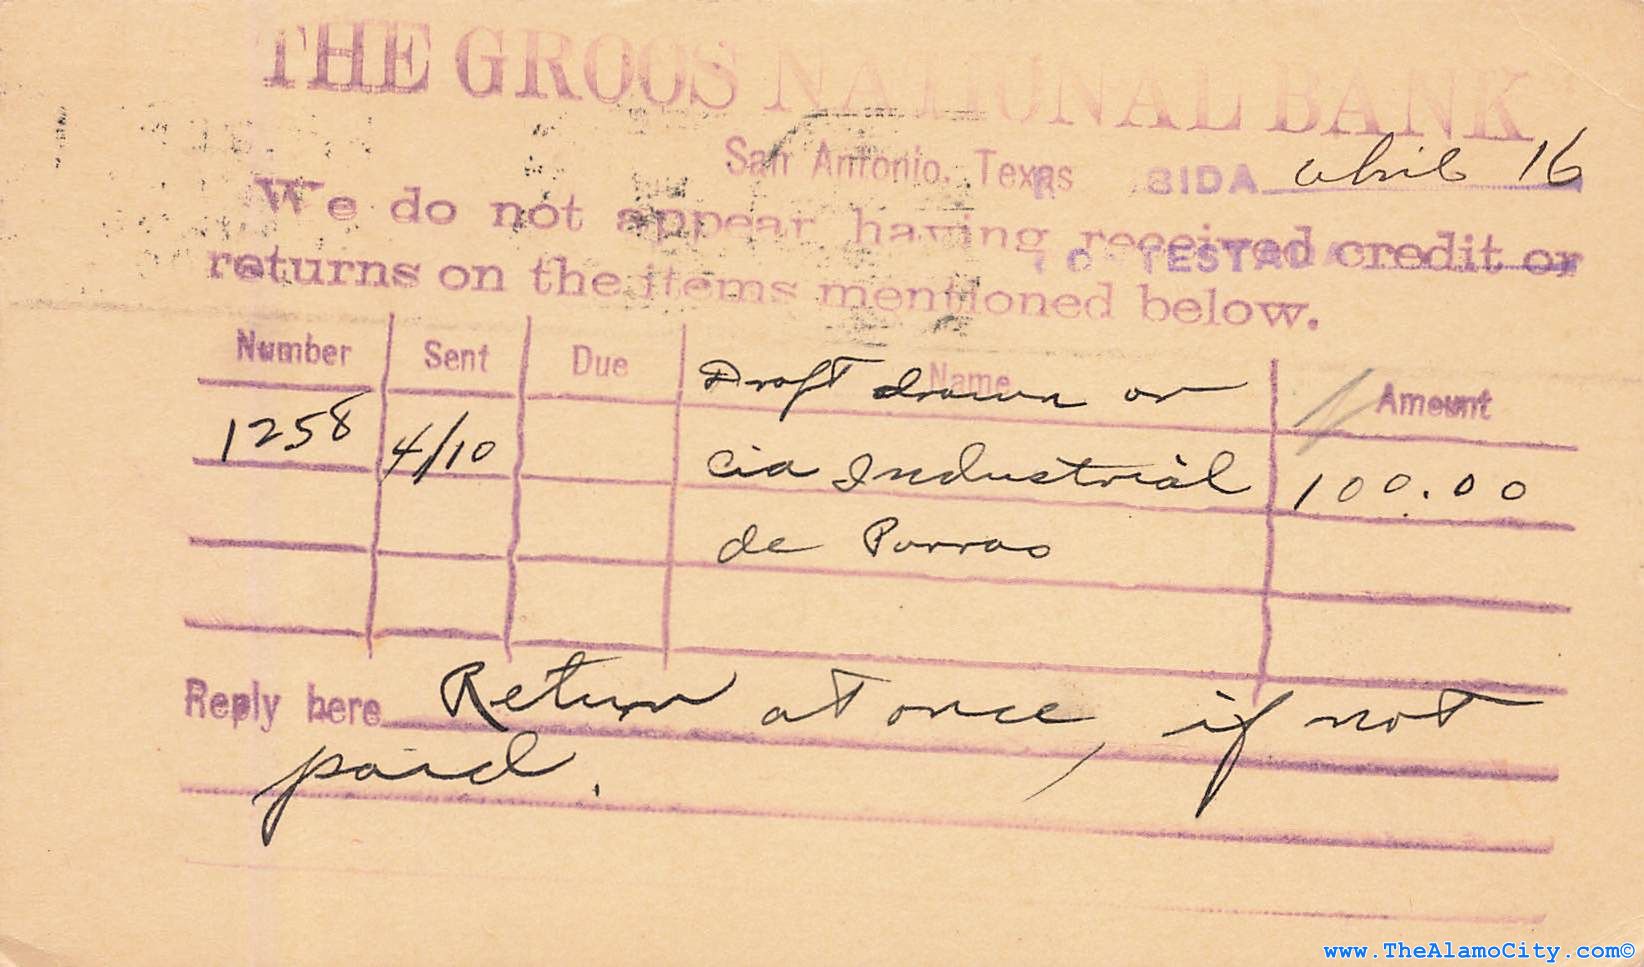 THE GROOS NATIONAL BANK
San Antonio, Texas April 16
R SIDA
We do not appear having received credit or
TESTADA
returns on the items mentioned below.
Number Sent Due Name Amount
Draft drawn on
1258 4/10 Cia Industrial 100.00
de Parras
Reply here Return at once, if not
paid.
www.TheAlamoCity.com©